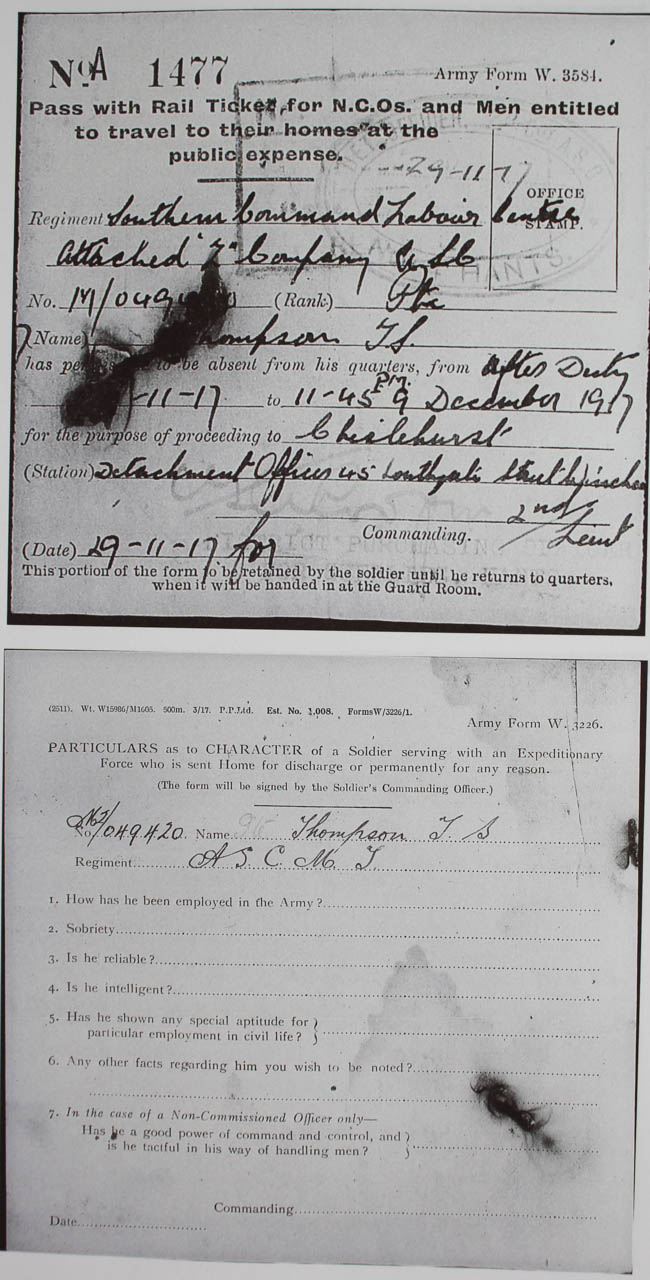 No A 1477
Army Form W. 3584.
Pass with Rail Ticket, for N.C.Os. and Men entitled
to travel to their homes at the
public expense.
29-11-17
OFFICE
STAMP.
Regiment Southern Command Labour Centre
Attached Company ASC
HANTS.
No. M/049 (Rank) Pte
(Name) Thompson T S.
has to be absent from his quarters, from After Duty
-11-17 to 11-45 P.M. 9 December 1917
for the purpose of proceeding to Chislehurst
(Station) Detachment Offices 45 Southgate Street
2nd
Commanding. Lieut
(Date) 29-11-17 for
This portion of the form to be retained by the soldier until he returns to quarters,
when it will be handed in at the Guard Room.
(2511). Wt. W15986/M1605. 500m. 3/17. P.P.Ltd. Est. No. 1,008. Forms W/3226/1.
Army Form W. 3226.
PARTICULARS as to CHARACTER of a Soldier serving with an Expeditionary
Force who is sent Home for discharge or permanently for any reason.
(The form will be signed by the Soldier's Commanding Officer.)
No. M2/049420. Name Thompson T S
Regiment A S C M T
1. How has he been employed in the Army?
2. Sobriety
3. Is he reliable?
4. Is he intelligent?
5. Has he shown any special aptitude for
particular employment in civil life?
6. Any other facts regarding him you wish to be noted?
7. In the case of a Non-Commissioned Officer only—
Has he a good power of command and control, and
is he tactful in his way of handling men?
Commanding
Date